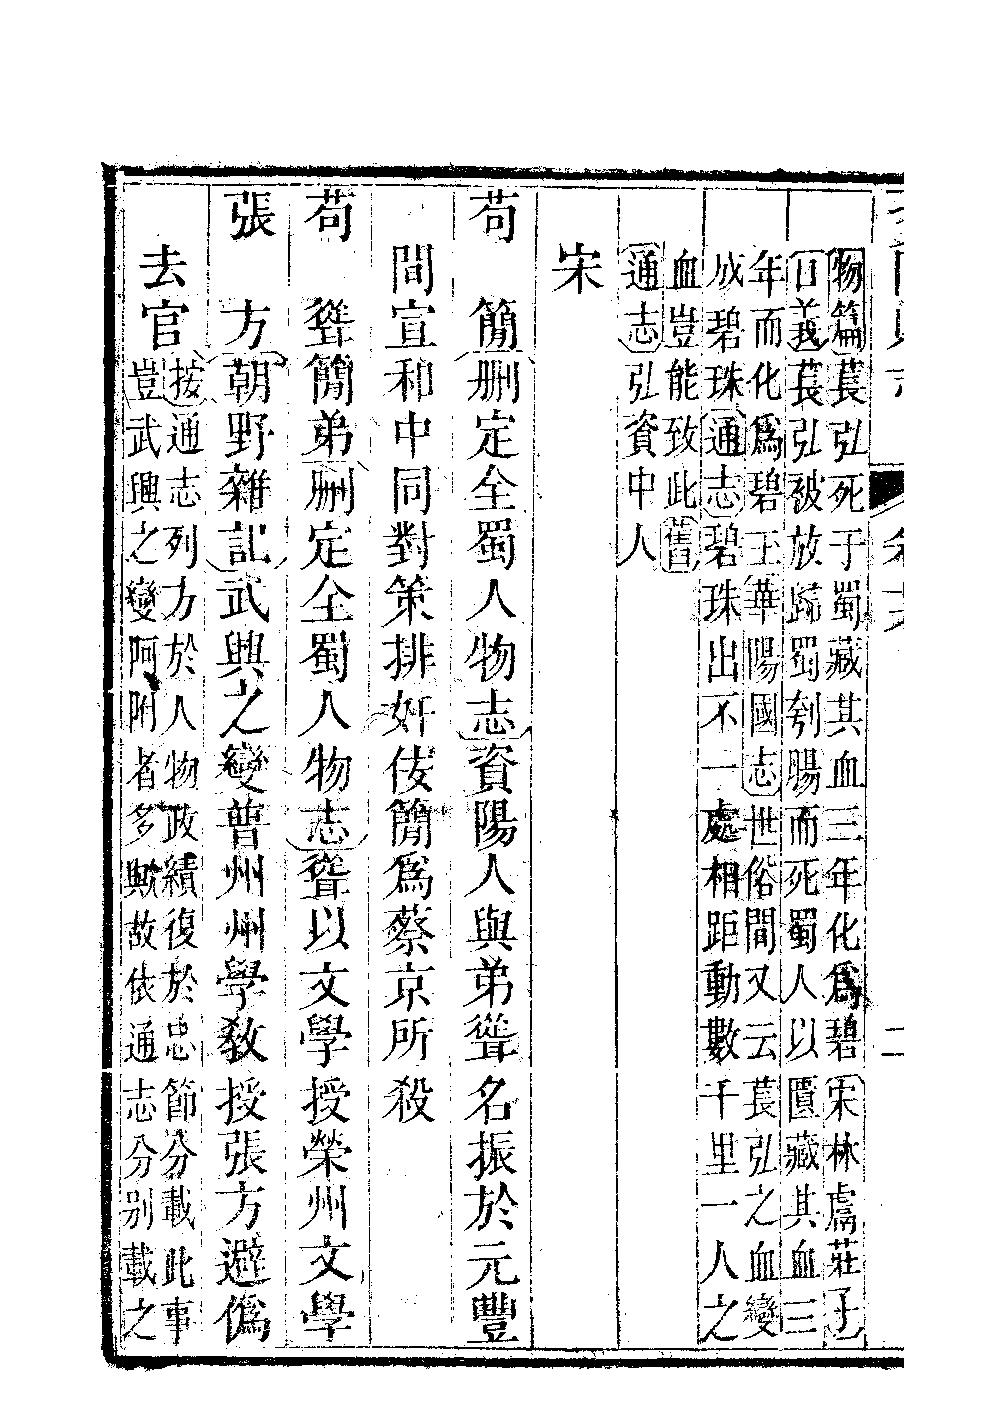 物篇萇弘死于蜀藏其血三年化爲碧宋林虙莊子
口義萇弘被放歸蜀刳腸而死蜀人以匱藏其血三
年而化爲碧玉華陽國志世俗間又云萇弘之血變
成碧珠通志碧珠出不一處相距動數千里一人之
血豈能致此舊
通志弘資中人
宋
苟　簡刪定全蜀人物志資陽人與弟聳名振於元豐
間宣和中同對策排奸佞簡爲蔡京所殺
苟　聳簡弟刪定全蜀人物志聳以文學授榮州文學
張　方朝野雜記武興之變普州州學教授張方避僞
去官按通志列方於人物政績復於忠節分載此事
豈武興之變阿附者多歟故依通志分别載之